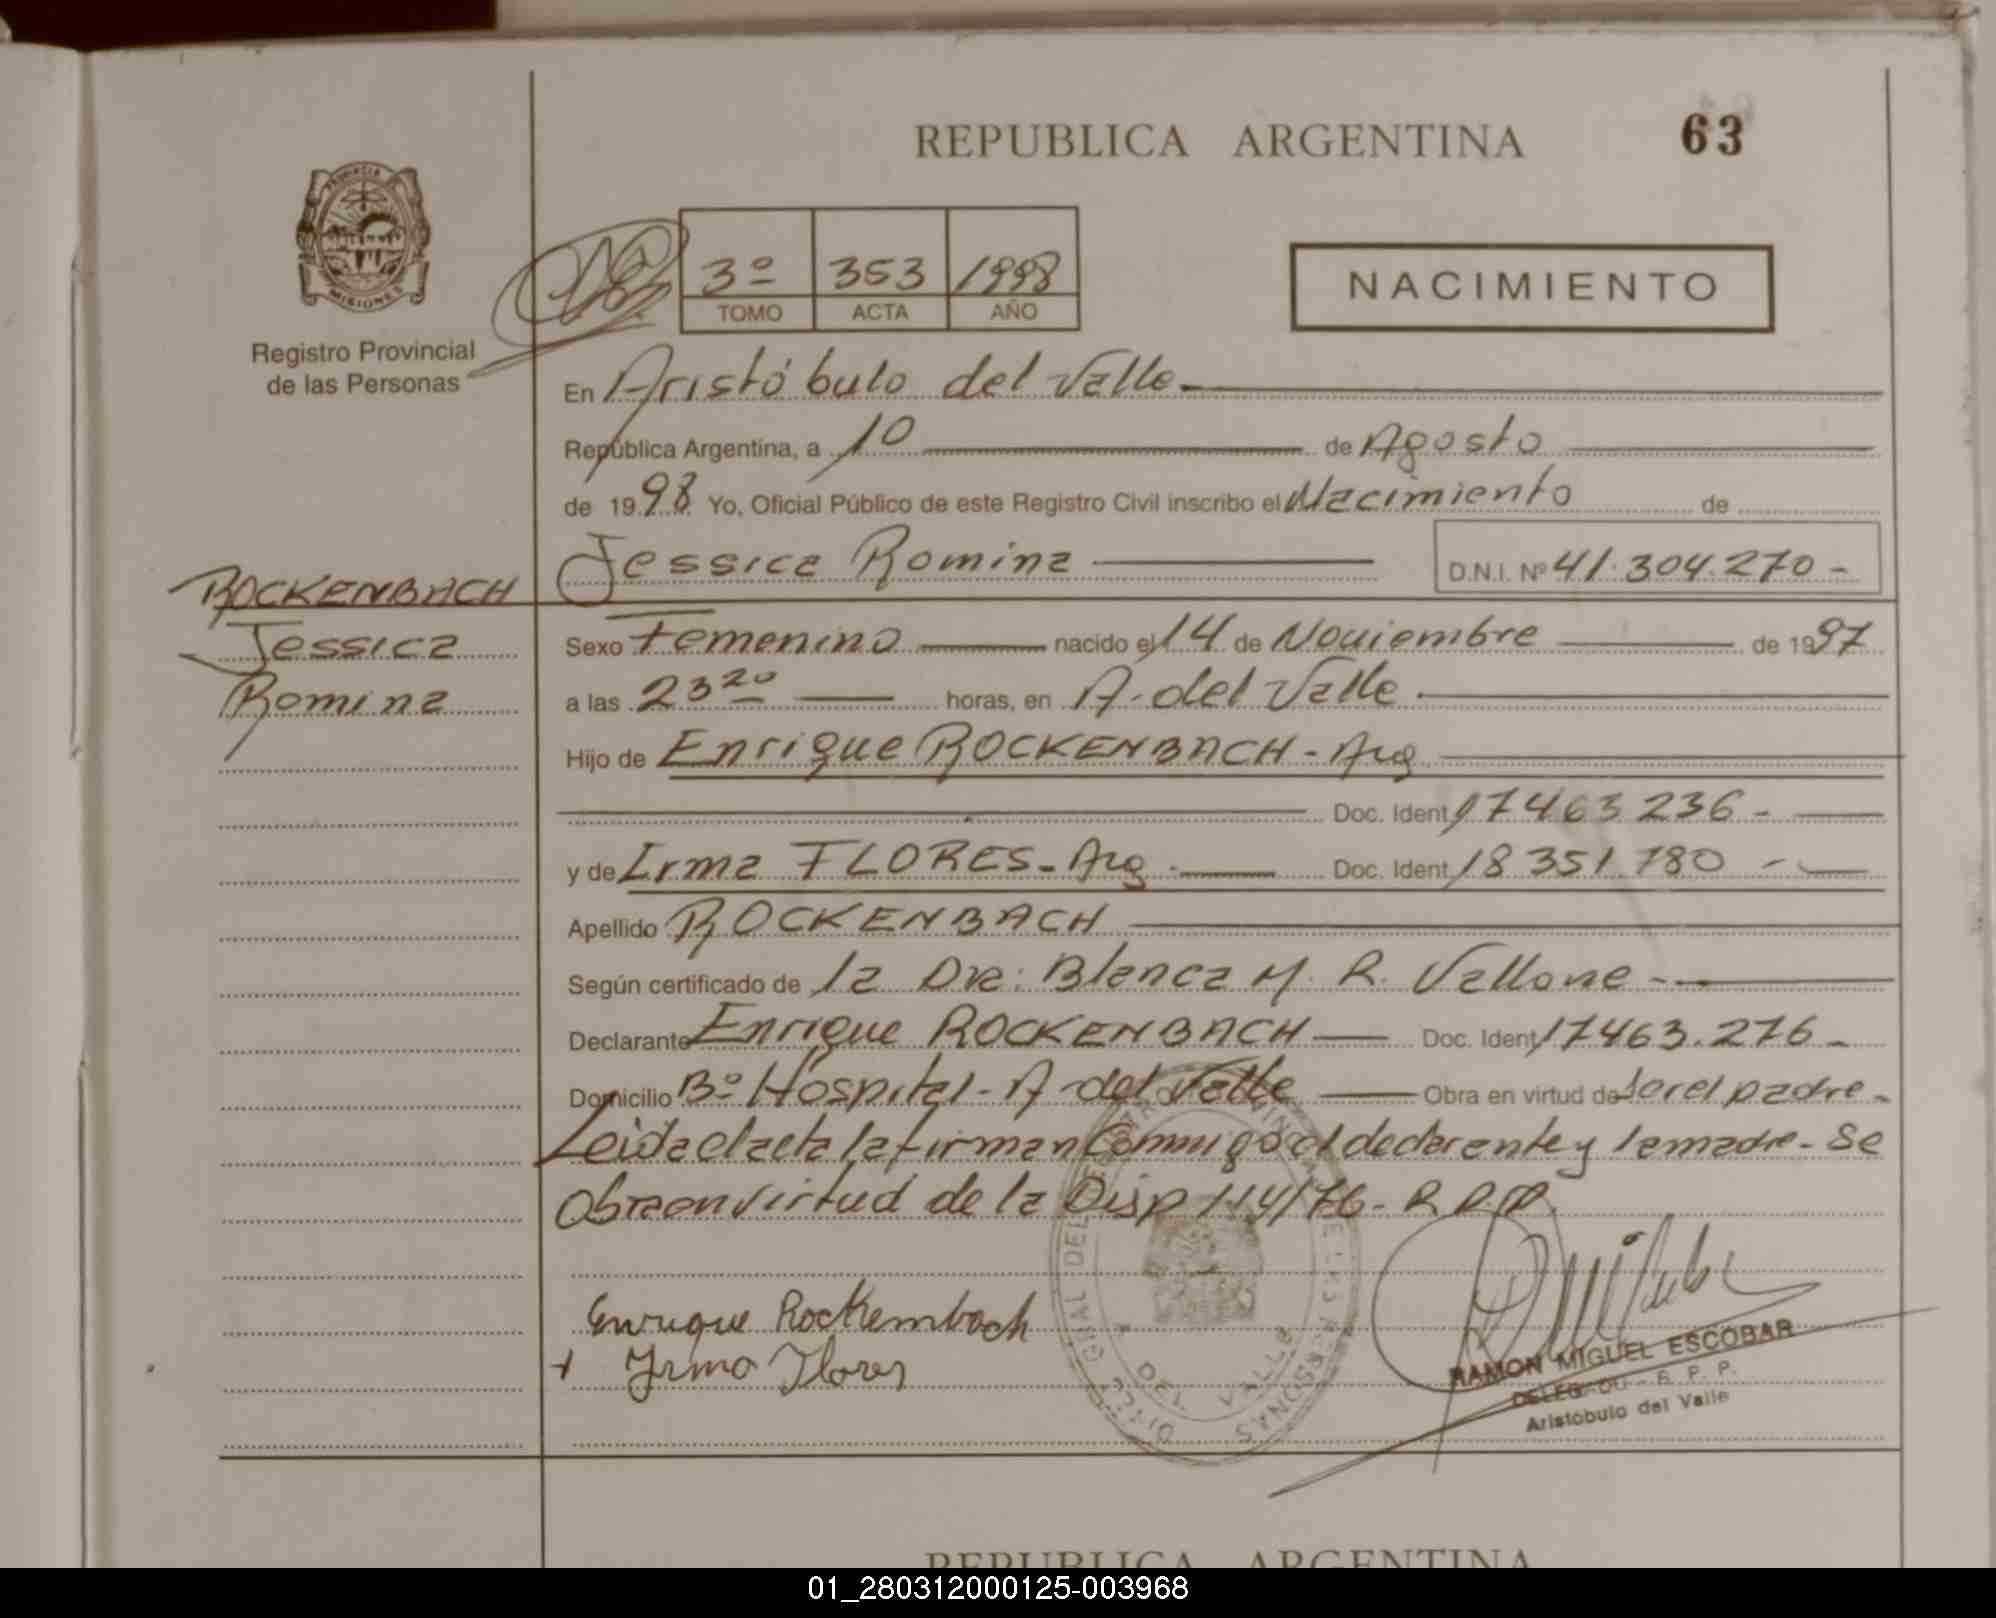 REPUBLICA ARGENTINA
63
PROVINCIA
MISIONES
Registro Provincial
de las Personas
3º 353 1998
TOMO ACTA AÑO
NACIMIENTO
En Aristóbulo del Valle
República Argentina, a 10 de Agosto
de 1998 Yo, Oficial Público de este Registro Civil inscribo el Nacimiento de
Jessica Romina D.N.I. Nº 41.304.270-
ROCKENBACH
Jessica
Romina
Sexo Femenino nacido el 14 de Noviembre de 1997
a las 23 20 horas, en A. del Valle
Hijo de Enrique ROCKENBACH - Arg
Doc. Ident. 17463236-
y de Irma FLORES - Arg. Doc. Ident. 18351.780-
Apellido ROCKENBACH
Según certificado de la Dra: Blanca M. R. Vallone-
Declarante Enrique ROCKENBACH Doc. Ident. 17463.276-
Domicilio Bº Hospital - A del Valle Obra en virtud de ser el padre-
Leida el acta la firman Conmigo el declarante y la madre- Se
Obra en virtud de la Disp 114/76- R.P.P.
Enrique Rockembach
+ Yrma Flores
DEL VALLE
RAMON MIGUEL ESCOBAR
R. P. P.
Aristobulo del Valle
REPUBLICA ARGENTINA
01_280312000125-003968